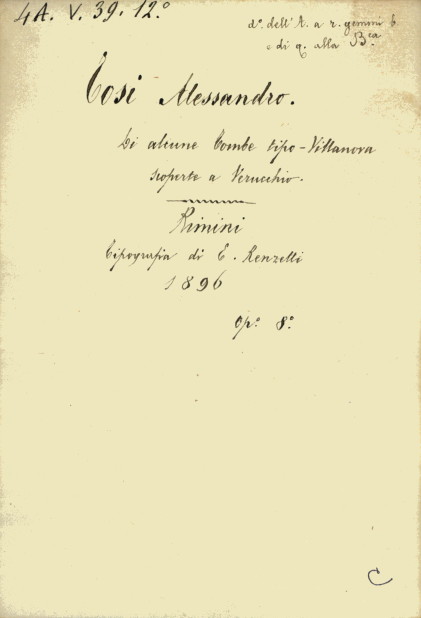 4A. V. 39. 12.°
d.° dell'A. a r. gemmi 6
e di q. alla B.ca
Tosi Alessandro.
Di alcune Tombe tipo-Villanova
scoperte a Verucchio.
Rimini
Tipografia di E. Renzetti
1896
op.° 8.°
C